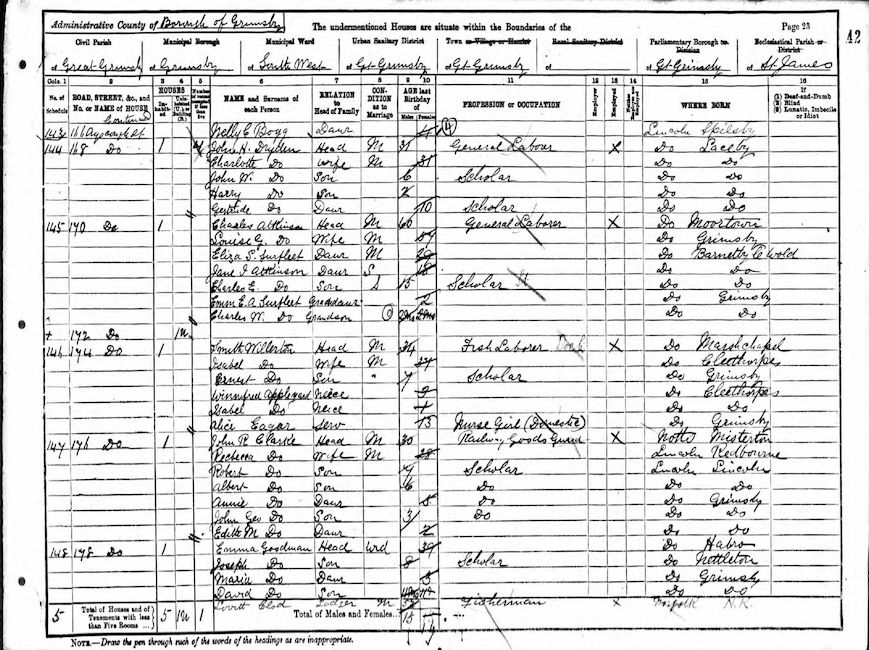 Administrative County of Borough of Grimsby The undermentioned Houses are situate within the Boundaries of the Page 23
42
Civil Parish Municipal Borough Municipal Ward Urban Sanitary District Town or Village or Hamlet Rural Sanitary District Parliamentary Borough or Division Ecclesiastical Parish or District
of Great Grimsby of Grimsby of South West of Gt Grimsby of Gt Grimsby of of Gt Grimsby of St James
Cols. 1 2 3 4 5 6 7 8 9 10 11 12 13 14 15 16
No. of Schedule ROAD, STREET, &c., and No. or NAME of HOUSE HOUSES Inhabited NAME and Surname of each Person RELATION to Head of Family CONDITION as to Marriage AGE last Birthday of Males Females PROFESSION or OCCUPATION Employer Employed WHERE BORN If (1) Deaf-and-Dumb (2) Blind (3) Lunatic, Imbecile or Idiot
143 166 Nelly E Bogg Daur 4 Lincoln Spilsby
144 168 Do 1 John H. Dryden Head M 31 General Labour X Do Laceby
Charlotte Do Wife M 31 Do Do
John W. Do Son 6 Scholar Do Do
Harry Do Son 2 Do Do
Gertrude Do Daur 10 Scholar Do Do
145 170 Do 1 Charles Atkinson Head M 60 General Laborer X Do Moortown
Louise G. Do Wife M Do Grimsby
Eliza S. Surfleet Daur M Do Barnetby
Jane I Atkinson Daur S Do Do
Charles E. Do Son S 15 Scholar Do Do
Emm E.A Surfleet Grandaur 2 Do Grimsby
Charles W. Do Grandson Do Do
172 Do 1u
146 174 Do 1 Smith Willerton Head M 34 Fish Laborer Dock X Do Marshchapel
Isabel Do Wife M 34 Do Cleethorpes
Ernest Do Son " 7 Scholar Do Grimsby
Winnifred Appleyard Neice 9 Do Cleethorpes
Isabel Do Neice Do Do
Alice Eagar Serv 15 Nurse Girl (Domestic) Do Grimsby
147 176 Do 1 John R Clarke Head M 30 Railway Goods Guard X Notts Misterton
Rebecca Do Wife M 28 Lincoln Redbourne
Robert Do Son 9 Scholar Lincoln Lincoln
Albert Do Son 6 Do Do Do
Annie Do Daur 5 Do Do Grimsby
John Geo Do Son 3 Do Do Do
Edith M Do Daur 2 Do Do
148 178 Do 1 Emma Goodman Head Wid 39 Do Habro
Joseph Do Son 8 Scholar Do Nettleton
Maria Do Daur 5 Do Grimsby
David Do Son Do Do
Lodger M Fisherman X Norfolk N.K.
5 Total of Houses and of Tenements with less than Five Rooms ... 5 1u 1 Total of Males and Females... 15 14
NOTE.—Draw the pen through such of the words of the headings as are inappropriate.